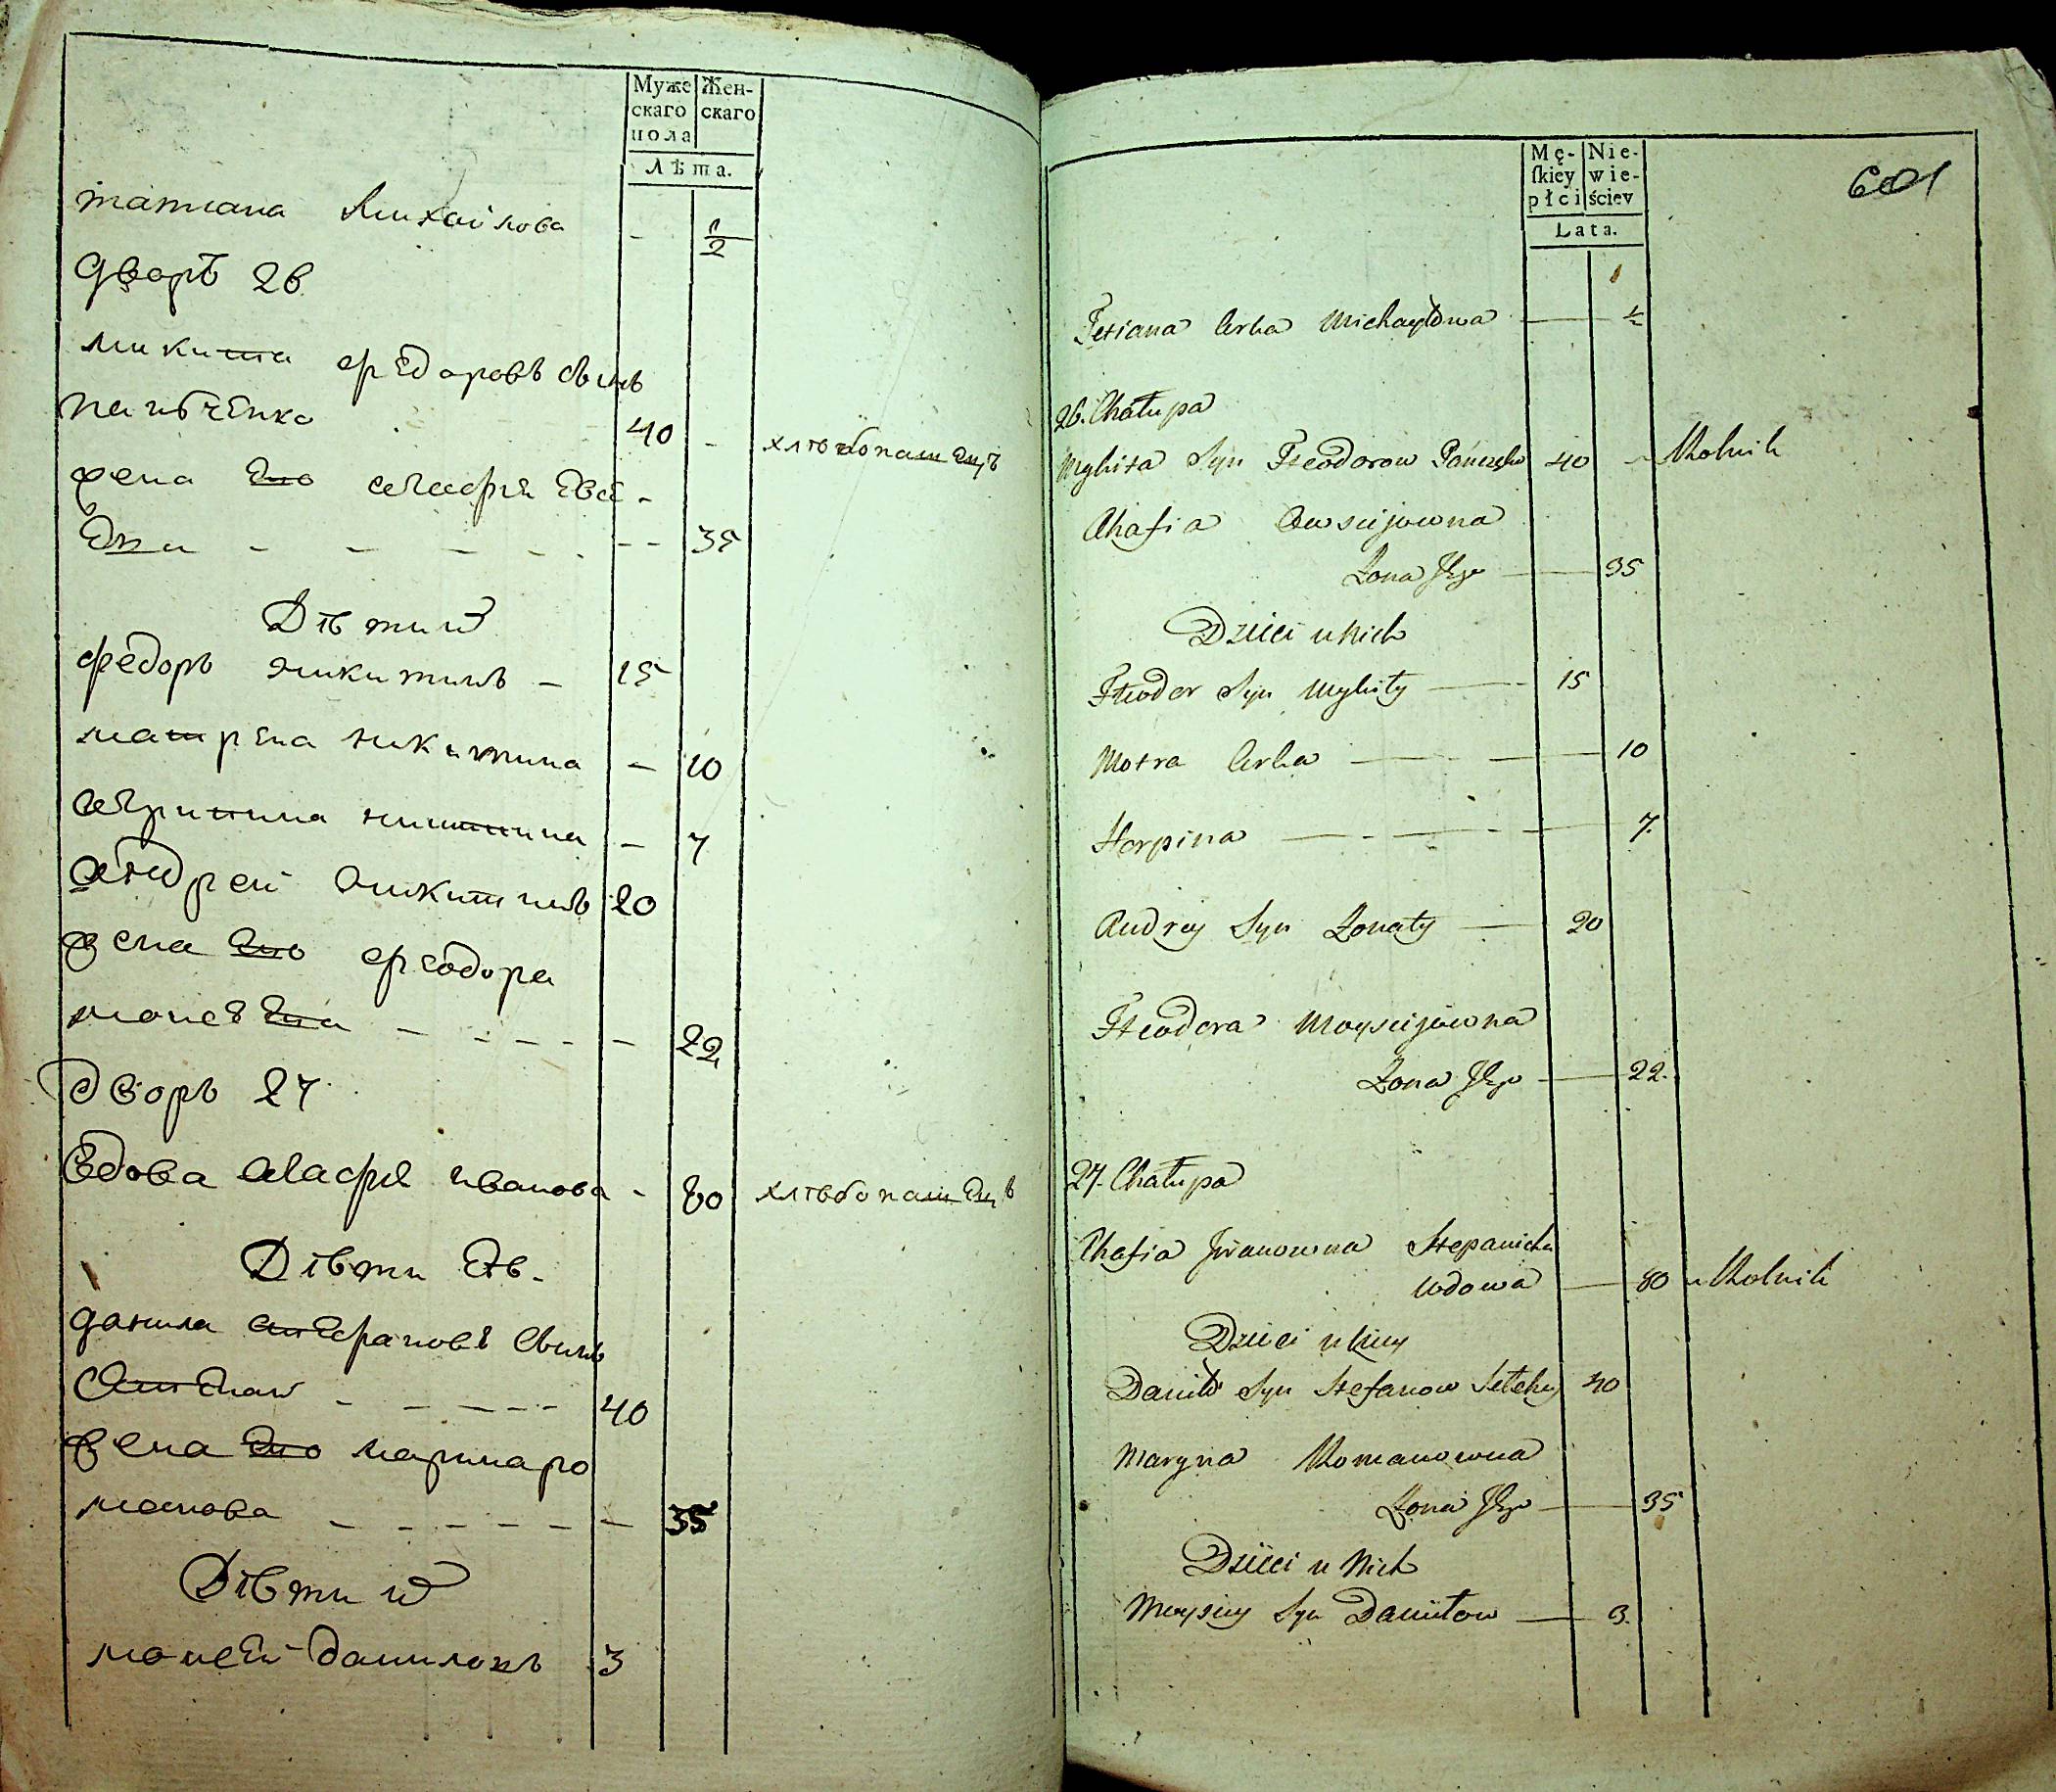 Муже
скаго
пола
Жен-
скаго
Лѣта.
татиана Михайлова - 1/2
дворъ 26
микита федоровъ сынъ
панченко 40 - хлѣбопашецъ
жена его агафия евсе -
ева - - - - - - - 35
Дѣти их
федоръ никитинъ - 15
матрена никитина - 10
агрипина никитина - 7
андрей никитинъ 20
жена его феодора
моисеева - - - - - - 22
дворъ 27
вдова агафия иванова - 80 хлѣбопашецъ
Дѣти Ея
данила сынъ
40
жена его марина ро
манова - - - - - - 35
Дѣти их
моисей даниловъ 3
Mę-
ſkiey
płci
Nie-
wie-
ściey
Lata.
601
Tetiana Corka Michayłowa — ½
26. Chałupa
Mykita Syn Fteodorow Pańczenko 40 Rolnik
Ahafia Owsiijowna
Żona Jego — 35
Dzieci u Nich
Fteodor Syn Mykity — 15
Motra Corka — 10
Horpina — 7.
Andrey Syn Żonaty — 20
Fteodora Moysiijowna
Żona Jego — 22.
27. Chałupa
Ahafia Jwanowna Stepanicha
Wdowa — 80 Rolnik
Dzieci u Niey
Daniło Syn Stefanow 40
Maryna Romanowna
Żona Jego — 35
Dzieci u Nich
Moysiey Syn Daniłow — 3.